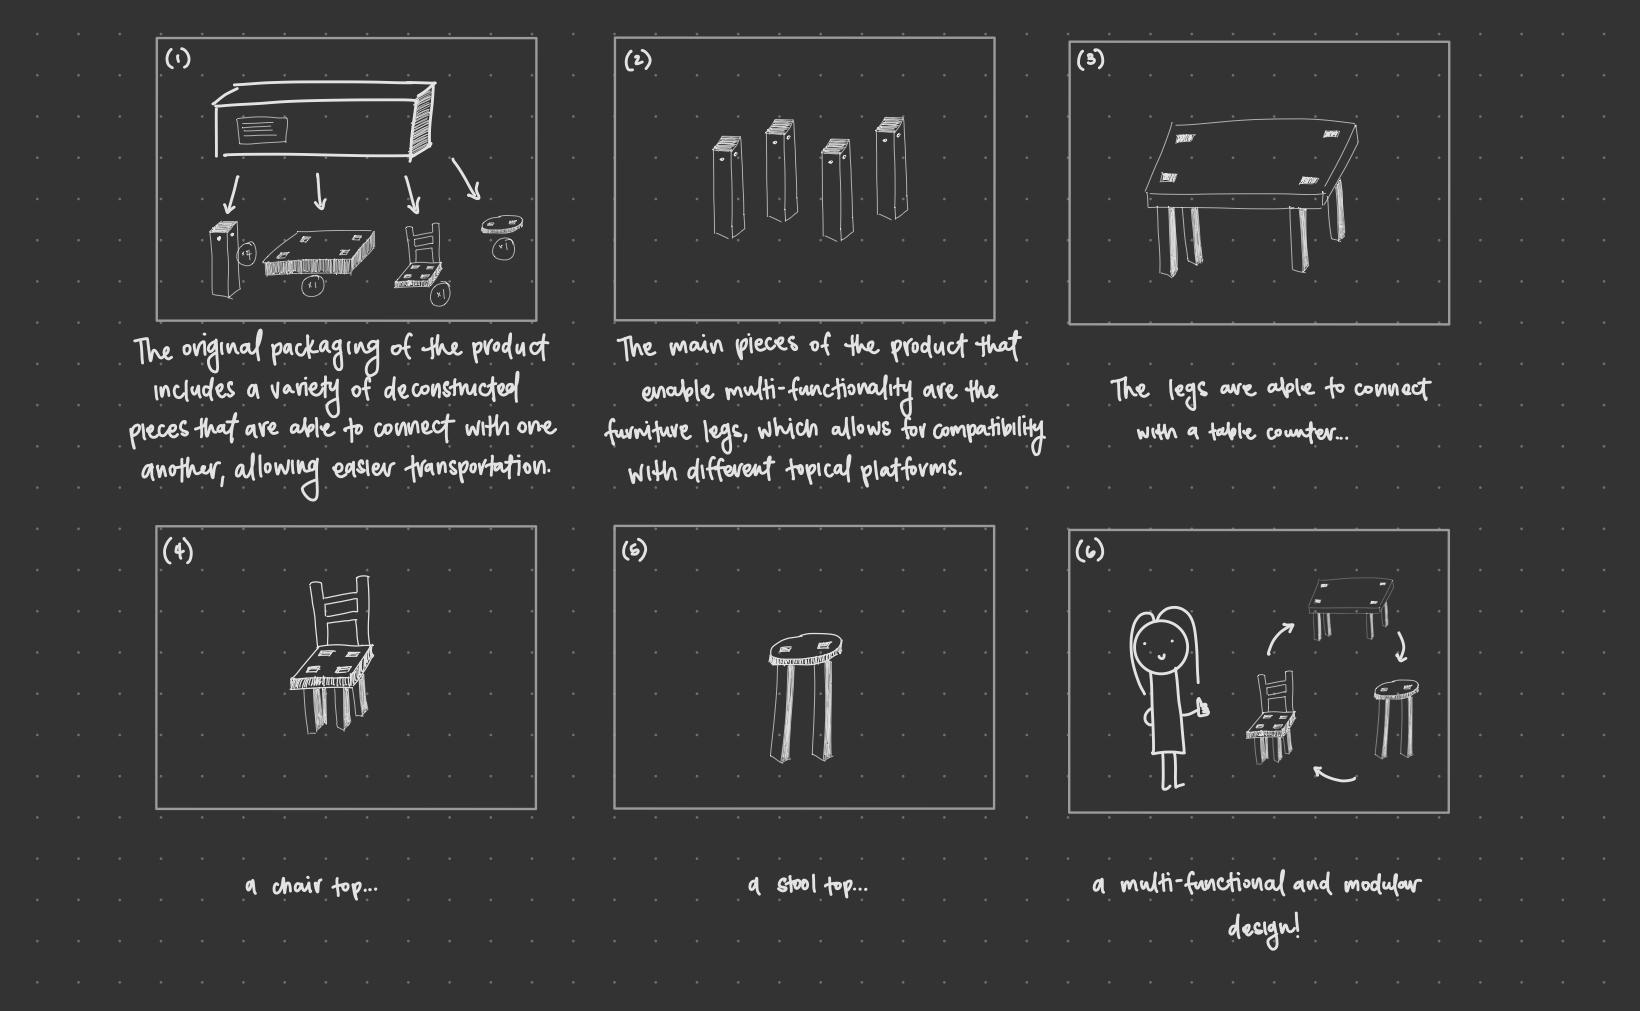 (1)
x4
x1
x1
x1
The original packaging of the product
includes a variety of deconstructed
pieces that are able to connect with one
another, allowing easier transportation.
(2)
The main pieces of the product that
enable multi-functionality are the
furniture legs, which allows for compatibility
with different topical platforms.
(3)
The legs are able to connect
with a table counter...
(4)
a chair top...
(5)
a stool top...
(6)
a multi-functional and modular
design!